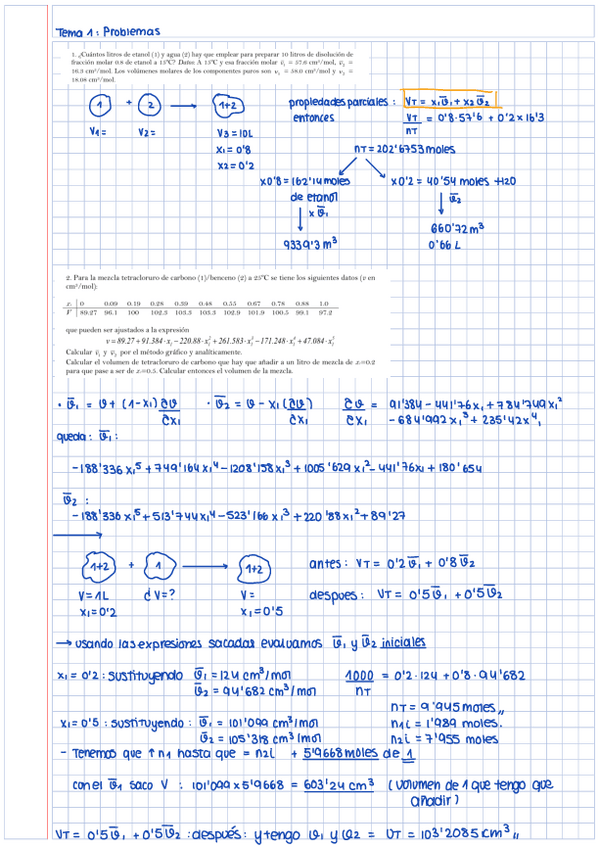 Tema 1: Problemas
1. ¿Cuántos litros de etanol (1) y agua (2) hay que emplear para preparar 10 litros de disolución de
fracción molar 0.8 de etanol a 15ºC? Datos: A 15ºC y esa fracción molar v̄₁ = 57.6 cm³/mol, v̄₂ =
16.3 cm³/mol. Los volúmenes molares de los componentes puros son v₁ = 58.0 cm³/mol y v₂ =
18.08 cm³/mol.
1 + 2 → 1+2
propiedades parciales: VT = x₁ϑ̄₁ + x₂ϑ̄₂
entonces VT/nT = 0'8·57'6 + 0'2 x 16'3
V1= V2= V3 = 10L
x1 = 0'8
x2 = 0'2
nT = 202'6753 moles
x0'8 = 162'14 moles
de etanol
x0'2 = 40'54 moles H2O
x ϑ̄₁
ϑ̄₂
9339'3 m³
660'72 m³
0'66 L
2. Para la mezcla tetracloruro de carbono (1)/benceno (2) a 25ºC se tiene los siguientes datos (v en
cm³/mol):
x₁ 0 0.09 0.19 0.28 0.39 0.48 0.55 0.67 0.78 0.88 1.0
V 89.27 96.1 100 102.3 103.3 103.3 102.9 101.9 100.5 99.1 97.2
que pueden ser ajustados a la expresión
v = 89.27 + 91.384·x₁ − 220.88·x₁² + 261.583·x₁³ − 171.248·x₁⁴ + 47.084·x₁⁵
Calcular v̄₁ y v̄₂ por el método gráfico y analíticamente.
Calcular el volumen de tetracloruro de carbono que hay que añadir a un litro de mezcla de x₁=0.2
para que pase a ser de x₁=0.5. Calcular entonces el volumen de la mezcla.
· ϑ̄₁ = ϑ + (1-x₁) ∂ϑ/∂x₁ · ϑ̄₂ = ϑ - x₁ (∂ϑ/∂x₁) ∂ϑ/∂x₁ = 91'384 - 441'76x₁ + 784'749x₁²
- 684'992x₁³ + 235'42x⁴₁
queda: ϑ̄₁:
-188'336x₁⁵ + 749'164x₁⁴ - 1208'158x₁³ + 1005'629x₁² - 441'76x₁ + 180'654
ϑ̄₂:
-188'336x₁⁵ + 513'744x₁⁴ - 523'166x₁³ + 220'88x₁² + 89'27
→
1+2 + 1 → 1+2
antes: VT = 0'2ϑ̄₁ + 0'8ϑ̄₂
V=1L ¿V=? V=
despues: VT = 0'5ϑ̄₁ + 0'5ϑ̄₂
x1=0'2 x1=0'5
→ usando las expresiones sacadas evaluamos ϑ̄₁ y ϑ̄₂ iniciales
x1 = 0'2: sustituyendo ϑ̄₁ = 124 cm³/mol 1000/nT = 0'2·124 + 0'8·94'682
ϑ̄₂ = 94'682 cm³/mol
nT = 9'945 moles,,
x1 = 0'5: sustituyendo: ϑ̄₁ = 101'099 cm³/mol n1i = 1'989 moles.
ϑ̄₂ = 105'318 cm³/mol n2i = 7'955 moles
- Tenemos que ↑n1 hasta que = n2i + 5'9668 moles de 1
con el ϑ̄₁ saco V: 101'099 x 5'9668 = 603'24 cm³ (volumen de 1 que tengo que
añadir)
VT = 0'5ϑ̄₁ + 0'5ϑ̄₂: después: y tengo ϑ1 y ϑ2 = VT = 103'2085 cm³,,